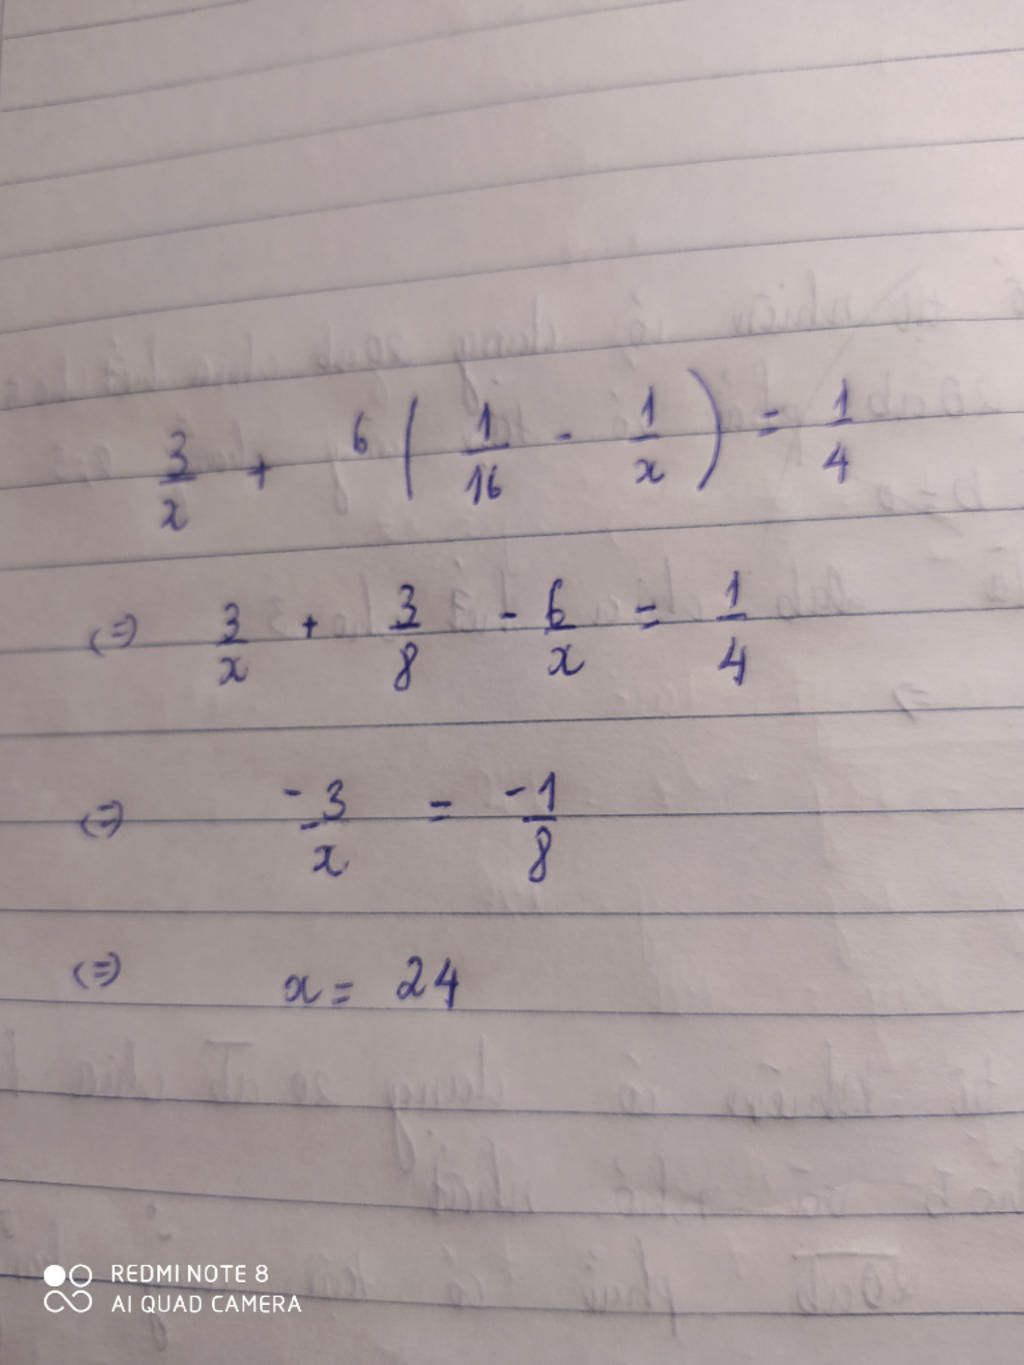 3/x + 6 ( 1/16 - 1/x ) = 1/4
(=) 3/x + 3/8 - 6/x = 1/4
(=) -3/x = -1/8
(=) x = 24
REDMI NOTE 8
AI QUAD CAMERA